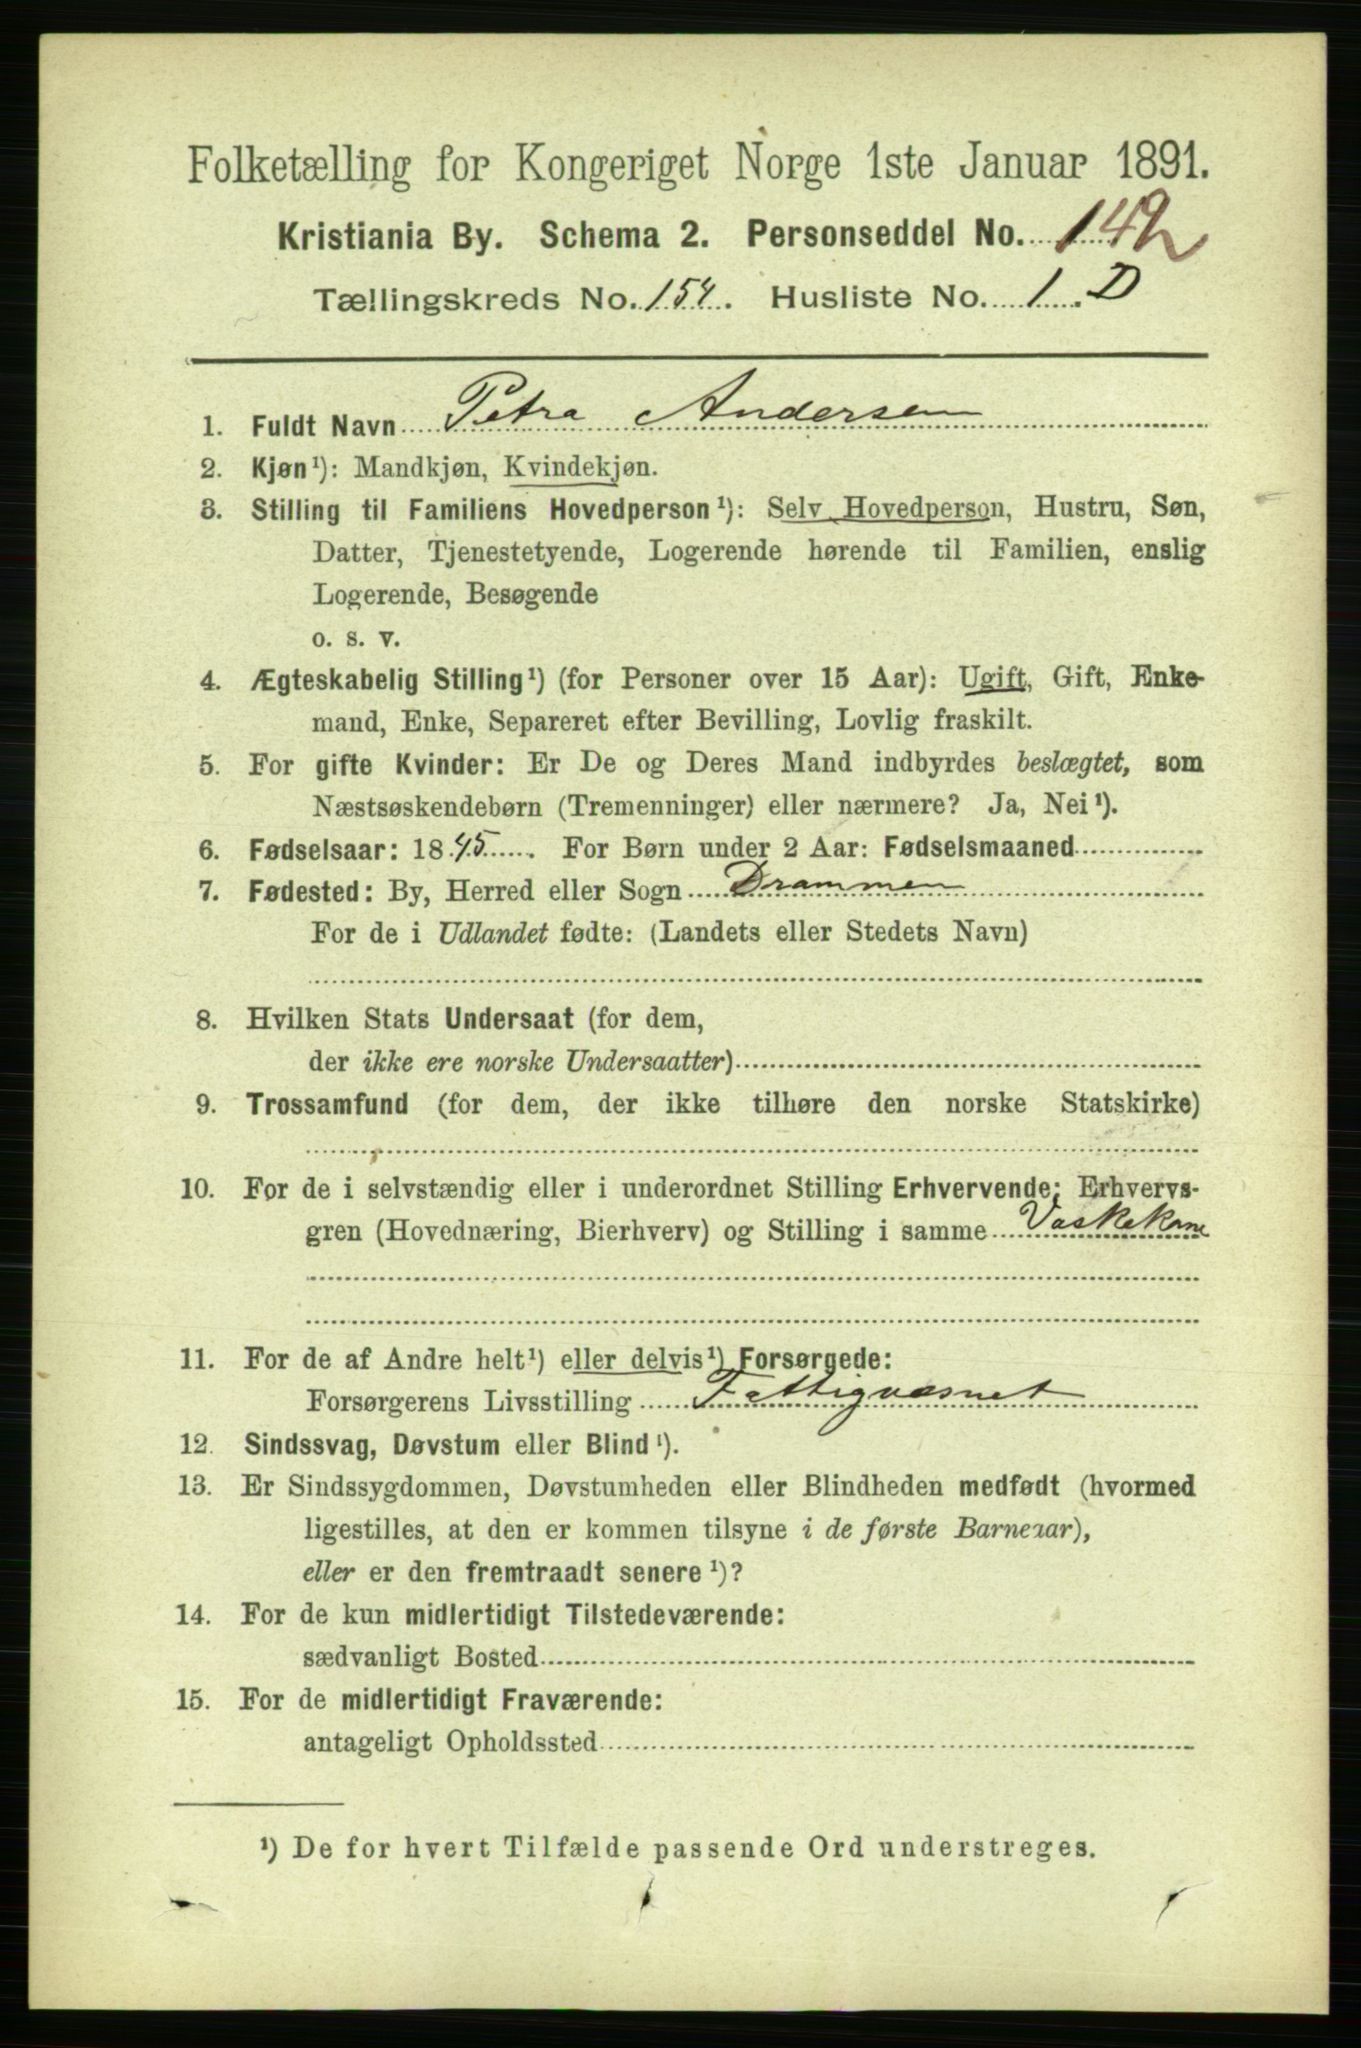 Folketælling for Kongeriget Norge 1ste Januar 1891.
Kristiania By. Schema 2. Personseddel No. 142
Tællingskreds No. 154. Husliste No. 1. D
1. Fuldt Navn Petra Andersen
2. Kjøn¹): Mandkjøn, Kvindekjøn.
3. Stilling til Familiens Hovedperson¹): Selv Hovedperson, Hustru, Søn,
Datter, Tjenestetyende, Logerende hørende til Familien, enslig
Logerende, Besøgende
o. s. v.
4. Ægteskabelig Stilling¹) (for Personer over 15 Aar): Ugift, Gift, Enke-
mand, Enke, Separeret efter Bevilling, Lovlig fraskilt.
5. For gifte Kvinder: Er De og Deres Mand indbyrdes beslægtet, som
Næstsøskendebørn (Tremenninger) eller nærmere? Ja, Nei¹).
6. Fødselsaar: 1845. For Børn under 2 Aar: Fødselsmaaned
7. Fødested: By, Herred eller Sogn Drammen
For de i Udlandet fødte: (Landets eller Stedets Navn)
8. Hvilken Stats Undersaat (for dem,
der ikke ere norske Undersaatter)
9. Trossamfund (for dem, der ikke tilhøre den norske Statskirke)
10. For de i selvstændig eller i underordnet Stilling Erhvervende: Erhvervs-
gren (Hovednæring, Bierhverv) og Stilling i samme Vaskekone
11. For de af Andre helt¹) eller delvis¹) Forsørgede:
Forsørgerens Livsstilling Fattigvæsnet
12. Sindssvag, Døvstum eller Blind¹).
13. Er Sindssygdommen, Døvstumheden eller Blindheden medfødt (hvormed
ligestilles, at den er kommen tilsyne i de første Barneaar),
eller er den fremtraadt senere¹)?
14. For de kun midlertidigt Tilstedeværende:
sædvanligt Bosted
15. For de midlertidigt Fraværende:
antageligt Opholdssted
¹) De for hvert Tilfælde passende Ord understreges.